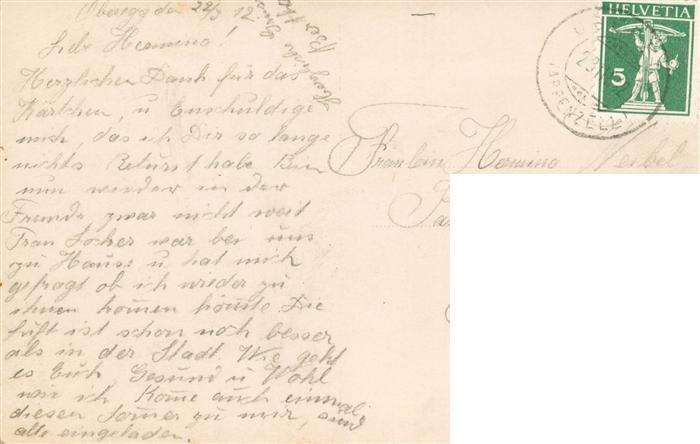 Oberegg den 22/3 12
Liebe Hermina!
Herzlichen Dank für das
Kärtchen, u Enschuldige
mich, das ich Dir so lange
nichts habe Bin
nun wieder in der
Fremde zwar nicht weit
Frau Locher war bei uns
zu Hause u hat mich
gefragt ob ich wieder zu
ihnen komen könnte Die
Luft ist schon noch besser
als in der Stadt. Wie geht
es Euch, Gesund u Wohl
wie ich Kome auch einmal
diesen Somer zu mir, sind
alle eingeladen.
Herzliche
Fräulein Hermina
HELVETIA
5
APPENZELL